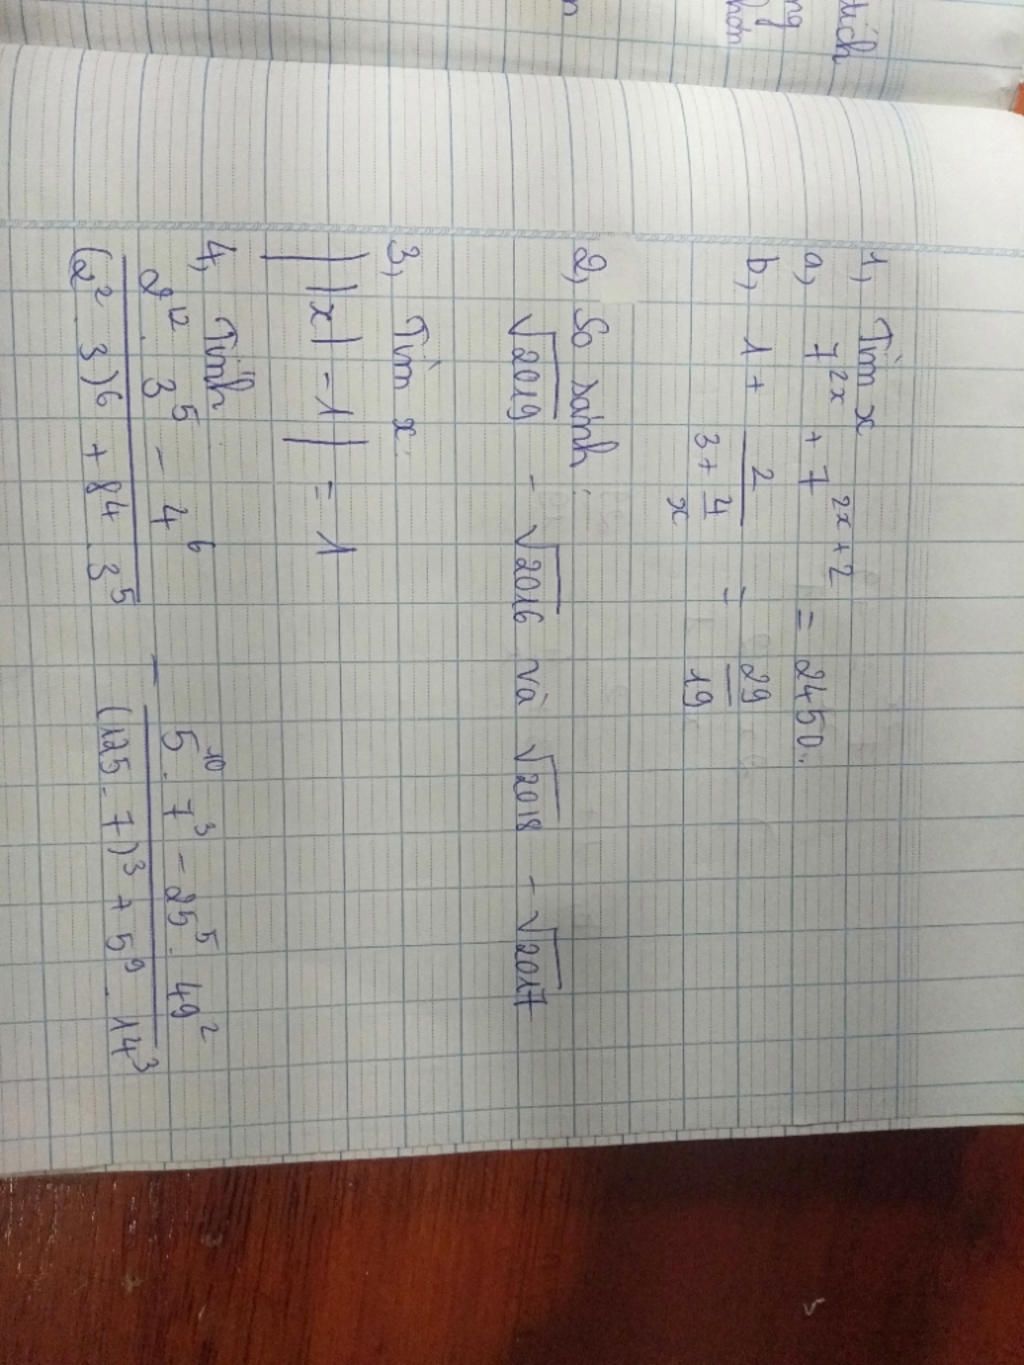 1, Tìm x
a, 7^{2x} + 7^{2x+2} = 2450.
b, 1 + \frac{2}{3+\frac{4}{x}} = \frac{29}{19}
2, So sánh:
√2019 - √2016 và √2018 - √2017
3, Tìm x
||x| - 1| = 1
4, Tính
\frac{2^{12} . 3^5 - 4^6}{(2^2 . 3)^6 + 8^4 . 3^5} - \frac{5^{10} . 7^3 - 25^5 . 49^2}{(125 . 7)^3 + 5^9 . 14^3}